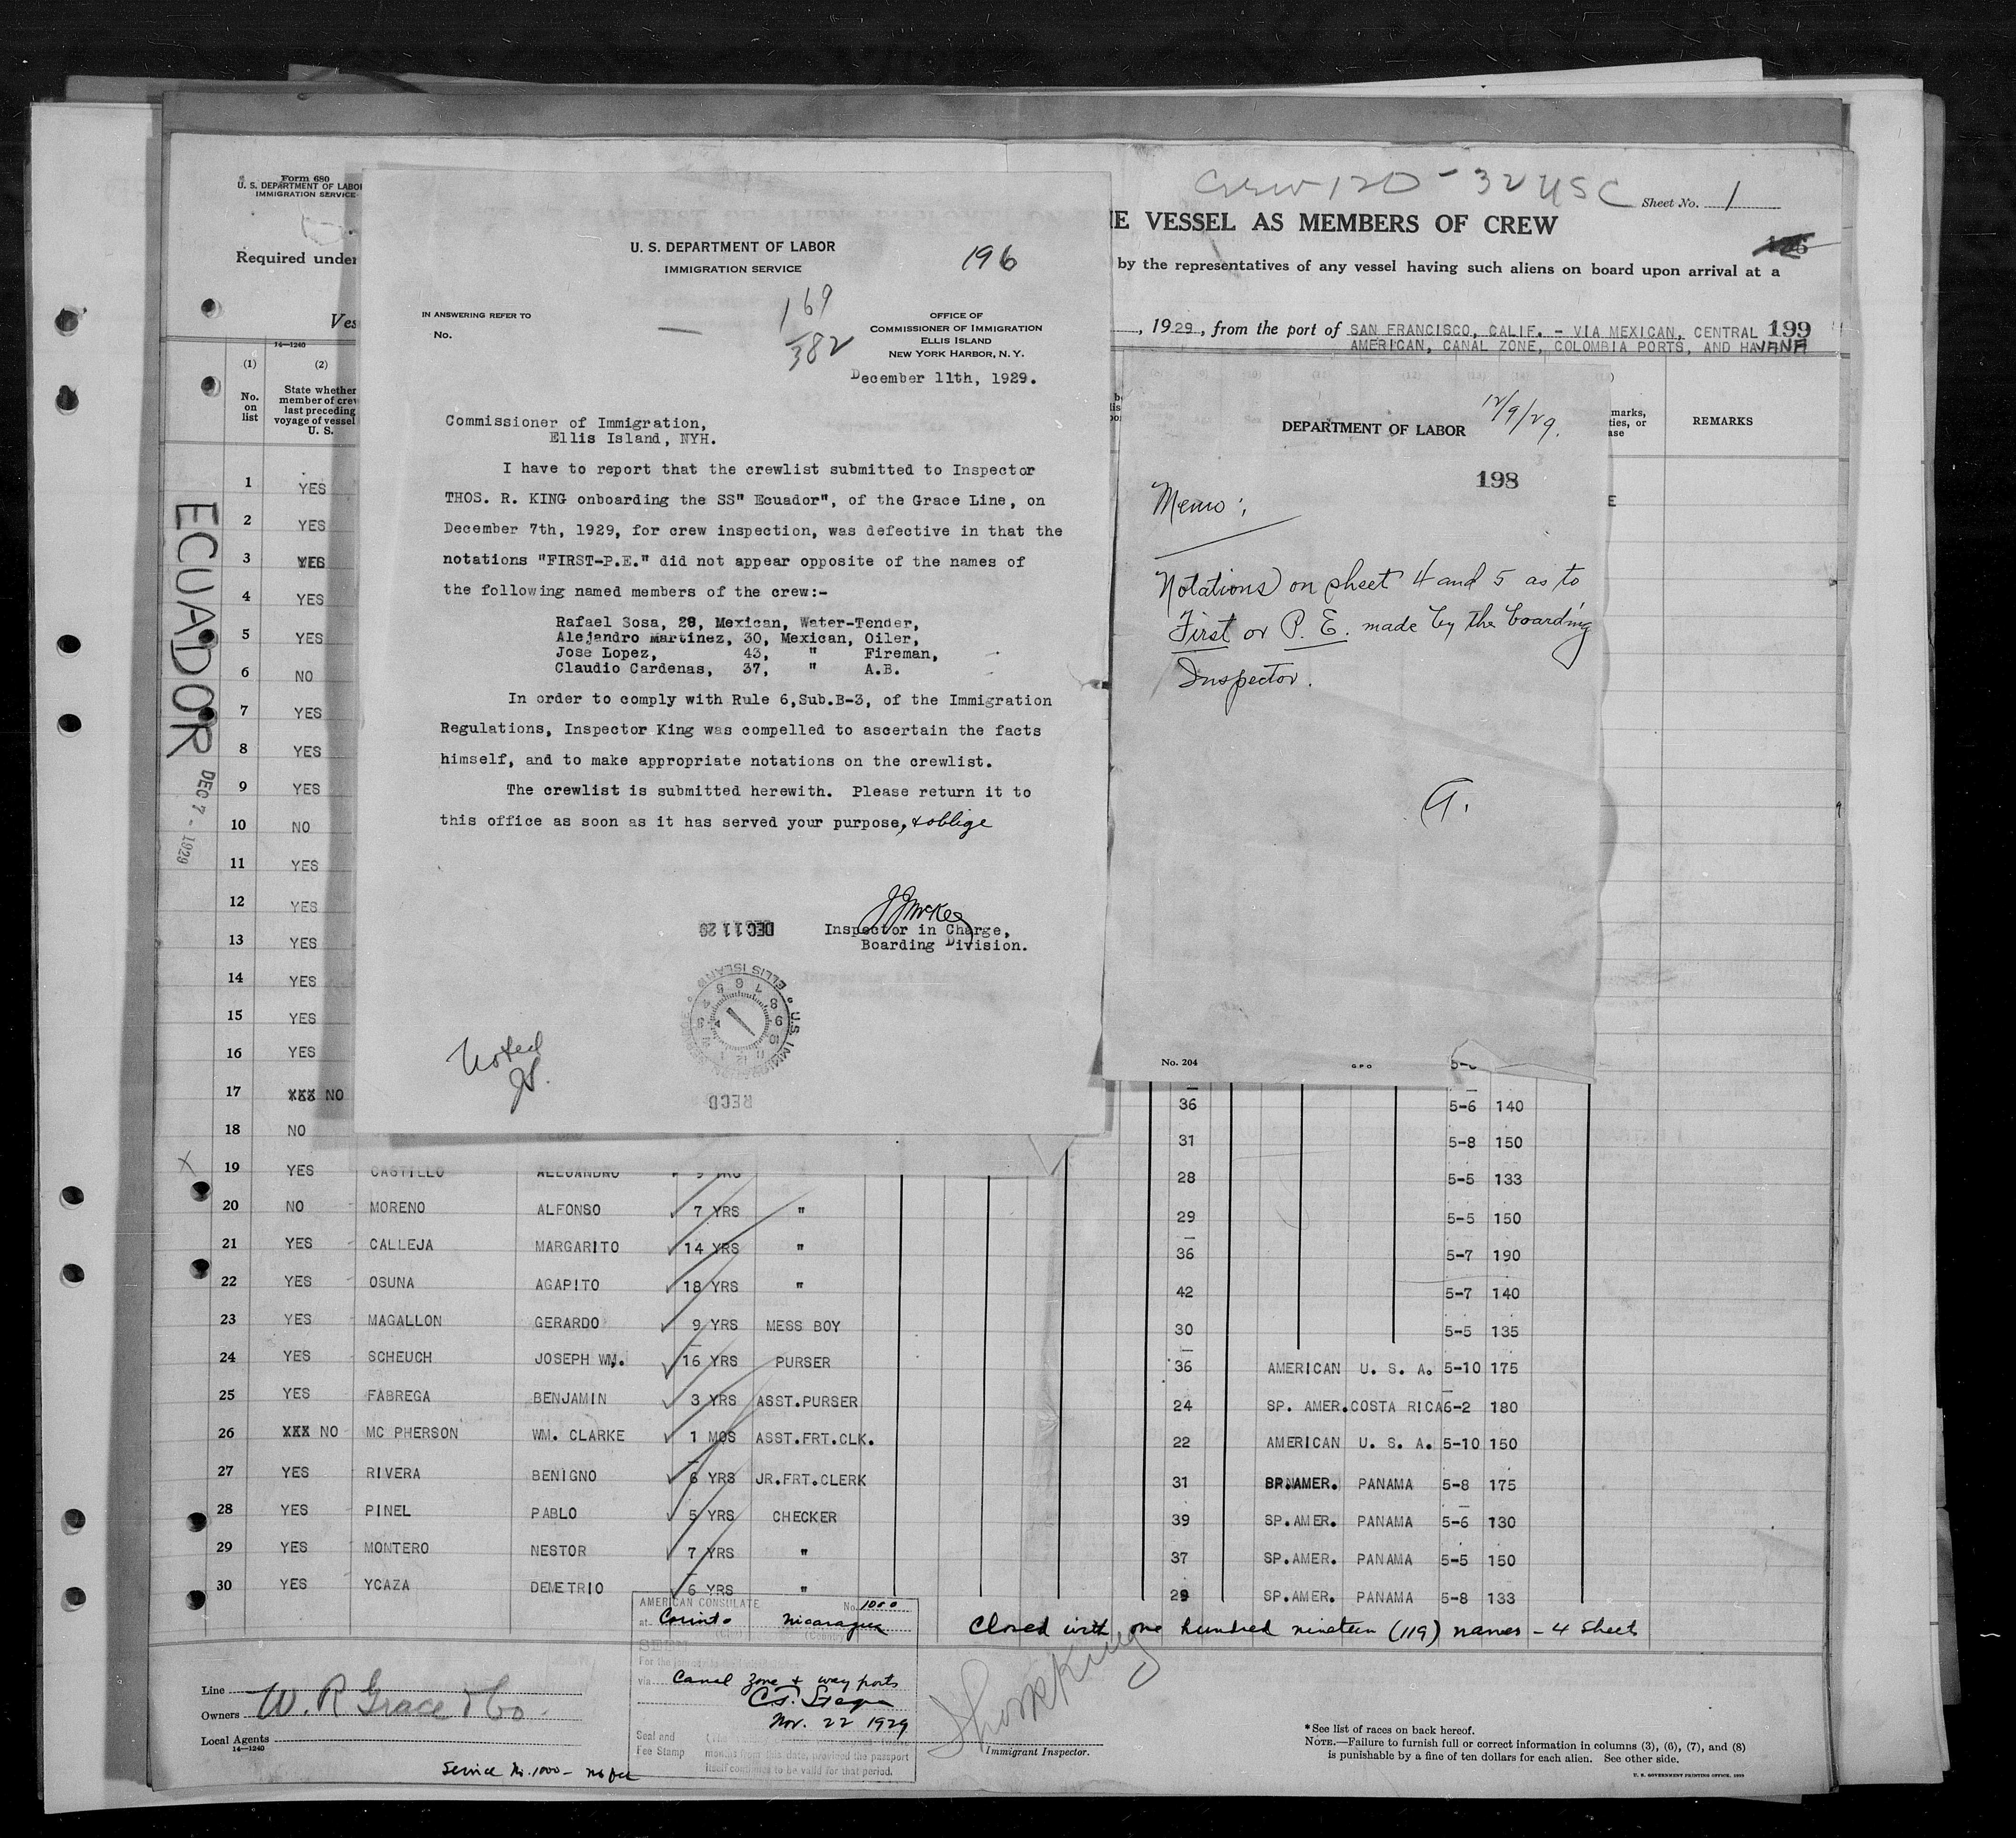 Form 680
U. S. DEPARTMENT OF LABOR
IMMIGRATION SERVICE
Required under
Ves
14—1240
(1)
No.
on
list
(2)
State whether
member of crew
last preceding
voyage of vessel
U. S.
ECUADOR
DEC 7 - 1929
1 YES
2 YES
3 YES
4 YES
5 YES
6 NO
7 YES
8 YES
9 YES
10 NO
11 YES
12 YES
13 YES
14 YES
15 YES
16 YES
17 XXX NO
18 NO
U. S. DEPARTMENT OF LABOR
IMMIGRATION SERVICE
196
169
382
IN ANSWERING REFER TO
No.
OFFICE OF
COMMISSIONER OF IMMIGRATION
ELLIS ISLAND
NEW YORK HARBOR, N. Y.
December 11th, 1929.
Commissioner of Immigration,
Ellis Island, NYH.
I have to report that the crewlist submitted to Inspector
THOS. R. KING onboarding the SS" Ecuador", of the Grace Line, on
December 7th, 1929, for crew inspection, was defective in that the
notations "FIRST-P.E." did not appear opposite of the names of
the following named members of the crew:-
Rafael Sosa, 28, Mexican, Water-Tender,
Alejandro Martinez, 30, Mexican, Oiler,
Jose Lopez, 43, " Fireman,
Claudio Cardenas, 37, " A.B.
In order to comply with Rule 6,Sub.B-3, of the Immigration
Regulations, Inspector King was compelled to ascertain the facts
himself, and to make appropriate notations on the crewlist.
The crewlist is submitted herewith. Please return it to
this office as soon as it has served your purpose, & oblige
JJ McKee
Inspector in Charge,
Boarding Division.
DEC 11 29
U.S. IMMIGRATION
ELLIS ISLAND
RECD
Noted
Crew 120 - 32 USC
Sheet No. 1
E VESSEL AS MEMBERS OF CREW
126
by the representatives of any vessel having such aliens on board upon arrival at a
, 1929, from the port of SAN FRANCISCO, CALIF. - VIA MEXICAN, CENTRAL 199
AMERICAN, CANAL ZONE, COLOMBIA PORTS, AND HAVANA
marks,
ties, or
ase
REMARKS
DEPARTMENT OF LABOR
12/9/29.
198
Memo:
Notations on sheet 4 and 5 as to
First or P. E. made by the boarding
Inspector.
No. 204
GPO
36 5-6 140
31 5-8 150
19 YES CASTILLO ALEJANDRO 9 YRS 28 5-5 133
20 NO MORENO ALFONSO 7 YRS " 29 5-5 150
21 YES CALLEJA MARGARITO 14 YRS " 36 5-7 190
22 YES OSUNA AGAPITO 18 YRS " 42 5-7 140
23 YES MAGALLON GERARDO 9 YRS MESS BOY 30 5-5 135
24 YES SCHEUCH JOSEPH WM. 16 YRS PURSER 36 AMERICAN U. S. A. 5-10 175
25 YES FABREGA BENJAMIN 3 YRS ASST.PURSER 24 SP. AMER. COSTA RICA 6-2 180
26 XXX NO MC PHERSON WM. CLARKE 1 MOS ASST.FRT.CLK. 22 AMERICAN U. S. A. 5-10 150
27 YES RIVERA BENIGNO 6 YRS JR.FRT.CLERK 31 SP.AMER. PANAMA 5-8 175
28 YES PINEL PABLO 5 YRS CHECKER 39 SP.AMER. PANAMA 5-6 130
29 YES MONTERO NESTOR 7 YRS " 37 SP.AMER. PANAMA 5-5 150
30 YES YCAZA DEMETRIO 6 YRS " 29 SP.AMER. PANAMA 5-8 133
Closed with one hundred nineteen (119) names - 4 Sheets
AMERICAN CONSULATE No. 1000
at Corinto Nicaragua
(City) (Country)
SEEN
For the
via Canal Zone & way ports
Nov. 22 1929
Seal and
Fee Stamp
months from this date, provided the passport
itself continues to be valid for that period.
Line
Owners W. R Grace & Co.
Local Agents
14—1240
Service No. 1000 - no fee
Thos R King
Immigrant Inspector.
*See list of races on back hereof.
NOTE.—Failure to furnish full or correct information in columns (3), (6), (7), and (8)
is punishable by a fine of ten dollars for each alien. See other side.
U. S. GOVERNMENT PRINTING OFFICE